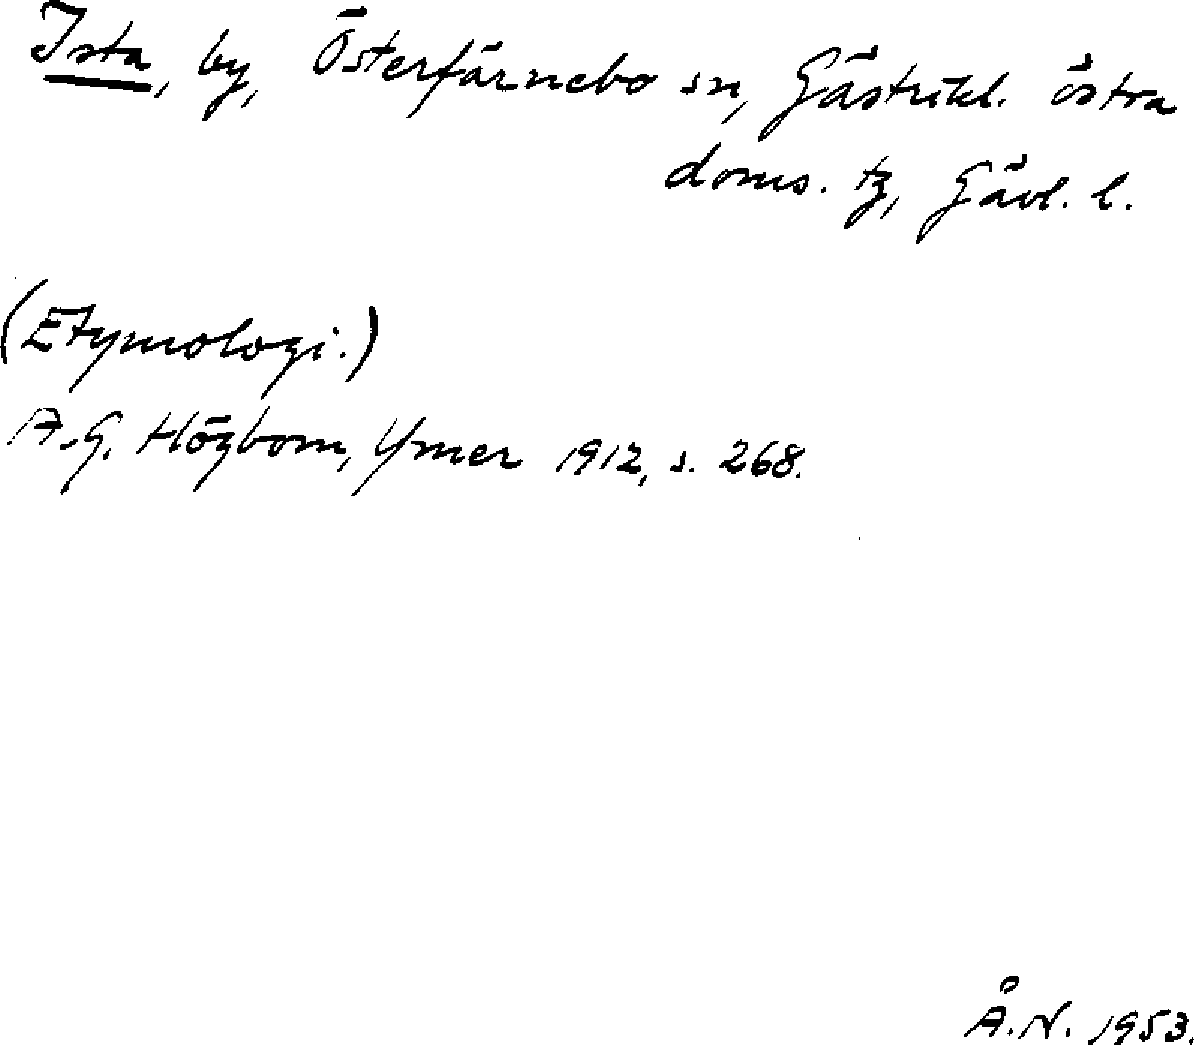 Ista, by, Österfärnebo sn, Gästrikl. östra
doms. tg, Gävl. l.
(Etymologi.)
A.G. Högbom, Ymer 1912, s. 268.
Å.N. 1953.